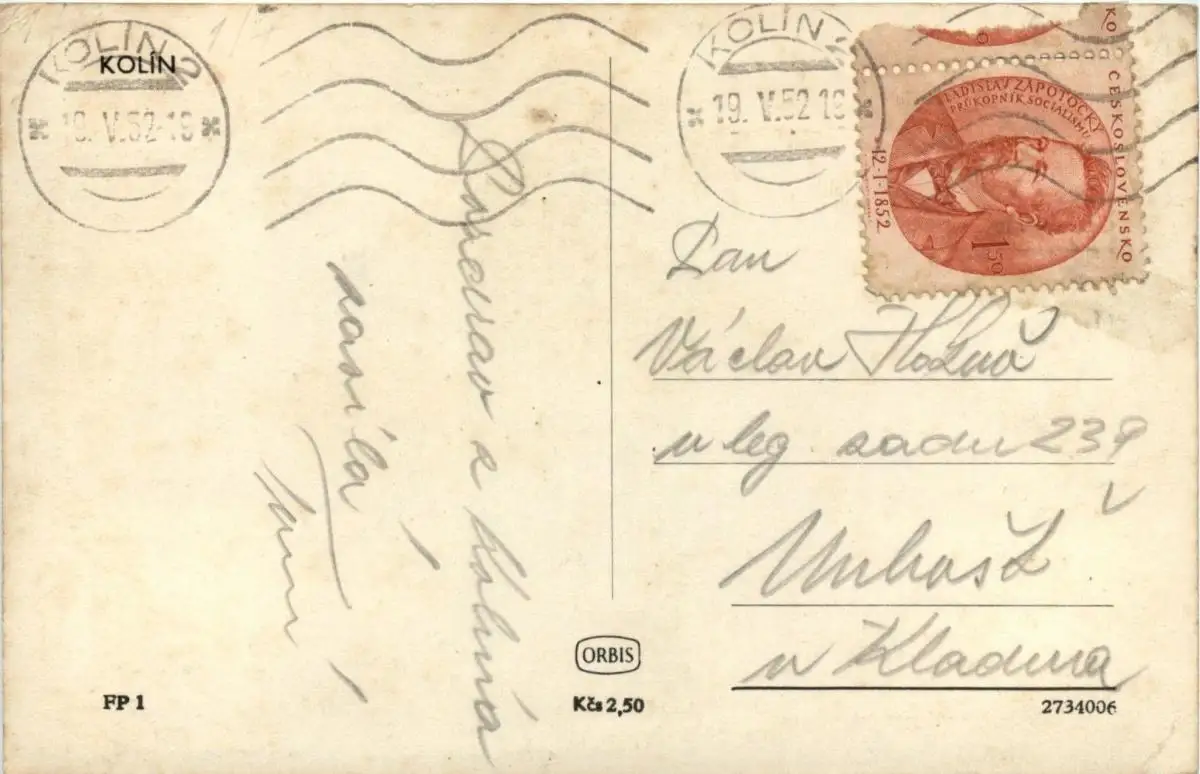 KOLÍN
KOLÍN 2
19.V.52-19
KOLÍN 2
19.V.52 19
KO
ČESKOSLOVENSKO
LADISLAV ZÁPOTOCKÝ
PRŮKOPNÍK SOCIALISMU
12·I·1852
1 50
Pozdrav z Kolína
zasílá
Pan
Václav
v leg. sadu 239
Unhošť
u Kladna
ORBIS
FP 1
Kčs 2,50
2734006